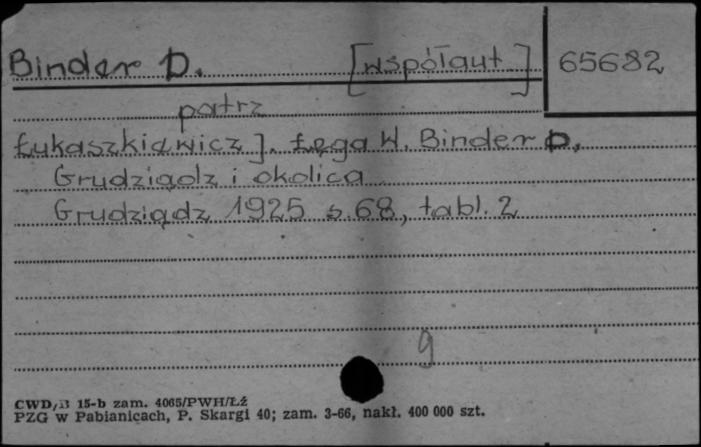 Binder D. [współaut] 65682
patrz
Łukaszkiewicz J. Łęga W. Binder D.
Grudziądz i okolica
Grudziądz 1925 s. 68, tabl. 2
9
CWD/B 15-b zam. 4065/PWH/Łź
PZG w Pabianicach, P. Skargi 40; zam. 3-66, nakł. 400 000 szt.